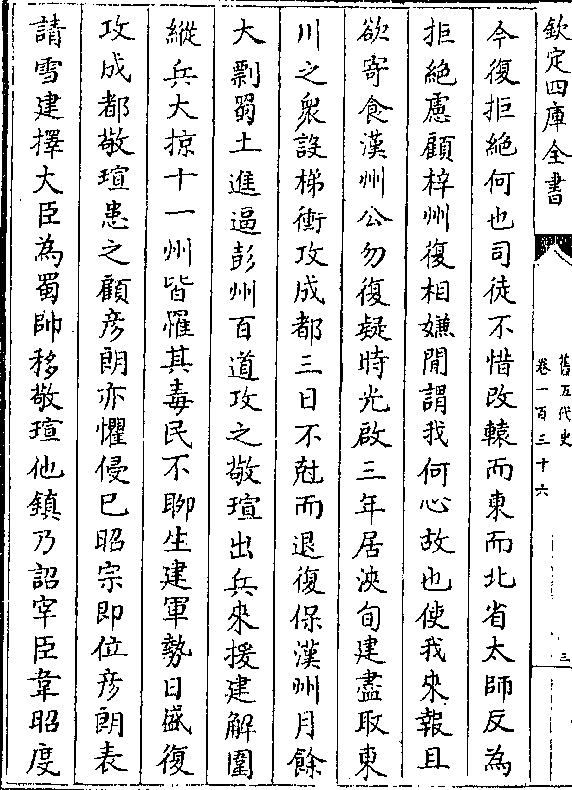 欽定四庫全書
舊五代史
卷一百三十六
三
今復拒絶何也司徒不惜改轅而東而北省太師反為
拒絶慮顧梓州復相嫌閒謂我何心故也使我來報且
欲寄食漢州公勿復疑時光啟三年居浹旬建盡取東
川之衆設梯衝攻成都三日不尅而退復保漢州月餘
大剽蜀土進逼彭州百道攻之敬瑄出兵來援建解圍
縱兵大掠十一州皆罹其毒民不聊生建軍勢日盛復
攻成都敬瑄患之顧彦朗亦懼侵已昭宗即位彦朗表
請雪建擇大臣為蜀帥移敬瑄他鎮乃詔宰臣韋昭度